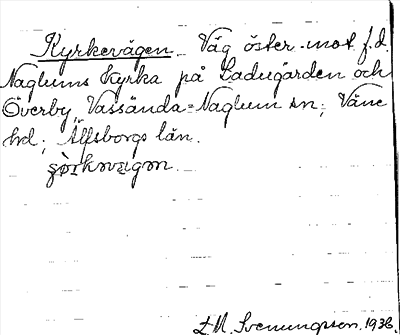 Kyrkevägen. Väg öster-mot f.d.
Naglums kyrka på Ladugården och
Överby, Vassända-Naglum sn; Väne
hd; Älfsborgs län.
L.M. Svenungsson. 1936.